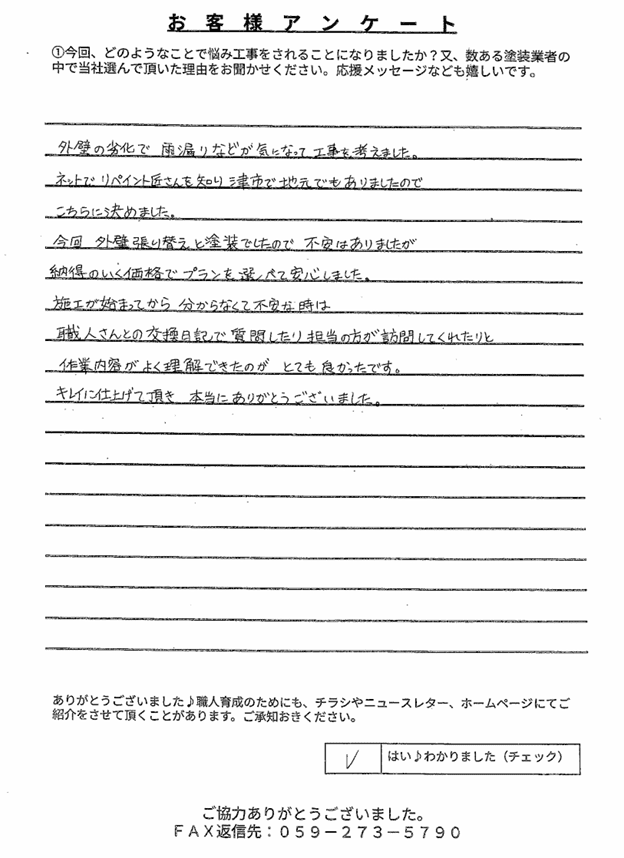 お客様アンケート
①今回、どのようなことで悩み工事をされることになりましたか？又、数ある塗装業者の
中で当社選んで頂いた理由をお聞かせください。応援メッセージなども嬉しいです。
外壁の劣化で 雨漏りなどが気になって工事を考えました。
ネットで リペイント匠さんを知り 津市で地元でもありましたので
こちらに決めました。
今回 外壁張り替えと塗装でしたので 不安はありましたが
納得のいく価格で プランを選べて安心しました。
施工が始まってから 分からなくて不安な時は
職人さんとの交換日記で質問したり 担当の方が訪問してくれたりと
作業内容がよく理解できたのが とても良かったです。
キレイに仕上げて頂き 本当にありがとうございました。
ありがとうございました♪職人育成のためにも、チラシやニュースレター、ホームページにてご
紹介をさせて頂くことがあります。ご承知おきください。
✓ はい♪わかりました（チェック）
ご協力ありがとうございました。
ＦＡＸ返信先：０５９－２７３－５７９０